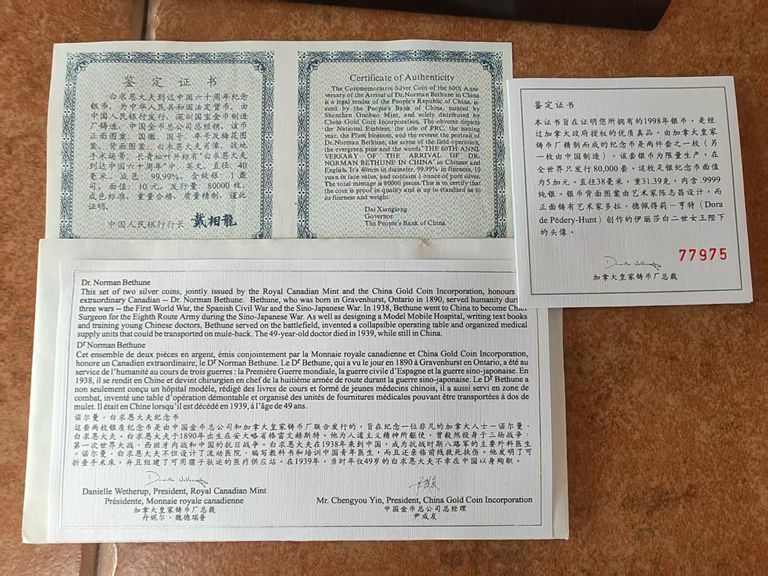 鉴定证书
白求恩大夫到达中国六十周年纪念
银币,为中华人民共和国法定货币,由
中国人民银行发行,深圳国宝金币制造
厂铸造,中国金币总公司总经销。该币
正面图案:国徽、国号、年号及梅花图
案,背面图案:白求恩大夫肖像、战地
手术场景、长青松叶并标有“白求恩大夫
到达中国六十周年”中、英文。直径:40毫
米,成色:99.99%,含纯银:1盎
司,面值:10元,发行量:80000枚,
成色标准,重量合格,质量精制,谨此
证明。
中国人民银行行长 戴相龙
Certificate of Authenticity
The Commemorative Silver Coin of the 60th Anni-
versary of the Arrival of Dr.Norman Bethune in China
is a legal tender of the People's Republic of China, is-
sued by the People's Bank of China, minted by
Shenzhen Guobao Mint, and solely distributed by
China Gold Coin Incorporation. The obverse depicts
the National Emblem, the title of PRC, the issuing
year, the Plum blossom, and the reverse the portrait of
Dr.Norman Bethune, the scene of the field operation,
the evergreen pine and the words "THE 60TH ANNI
VERSARY OF THE ARRIVAL OF DR.
NORMAN BETHUNE IN CHINA" in Chinese and
English. It's 40mm in diameter, 99.99% in fineness, 10
yuan in face value, and contains 1 ounce of pure silver.
The total mintage is 80000 pieces. This is to certify that
the coin is proof in quality and is up to standard as to
its fineness and weight.
Dai Xianglong
Governor
The People's Bank of China
鉴定证书
本证书旨在证明您所拥有的1998年银币,是经
过加拿大政府授权的优质真品。由加拿大皇家
铸币厂精制而成的纪念币是两件套之一枚(另
一枚由中国制造)。该套银币为限量生产,在
全世界只发行80,000套。这枚足银纪念币面值
为5加元。直径38毫米,重31.39克,内含 9999
纯银。银币背面图案由艺术家陈志昌设计,而
正面铸有艺术家多拉。德佩得莉-亨特(Dora
de Pédery-Hunt)创作的伊丽莎白二世女王陛下
的头像。
77975
加拿大皇家铸币厂总裁
Dr. Norman Bethune
This set of two silver coins, jointly issued by the Royal Canadian Mint and the China Gold Coin Incorporation, honours
extraordinary Canadian -- Dr. Norman Bethune. Bethune, who was born in Gravenhurst, Ontario in 1890, served humanity duri
three wars -- the First World War, the Spanish Civil War and the Sino-Japanese War. In 1938, Bethune went to China to become Chief
Surgeon for the Eighth Route Army during the Sino-Japanese War. As well as designing a Model Mobile Hospital, writing text books
and training young Chinese doctors, Bethune served on the battlefield, invented a collapsible operating table and organized medical
supply units that could be transported on mule-back. The 49-year-old doctor died in 1939, while still in China.
Dr Norman Bethune
Cet ensemble de deux pièces en argent, émis conjointement par la Monnaie royale canadienne et China Gold Coin Incorporation,
honore un Canadien extraordinaire, le Dr Norman Bethune. Le Dr Bethune, qui a vu le jour en 1890 à Gravenhurst en Ontario, a été au
service de l'humanité au cours de trois guerres : la Première Guerre mondiale, la guerre civile d'Espagne et la guerre sino-japonaise. En
1938, il se rendit en Chine et devint chirurgien en chef de la huitième armée de route durant la guerre sino-japonaise. Le Dr Bethune a
non seulement conçu un hôpital modèle, rédigé des livres de cours et formé de jeunes médecins chinois, il a aussi servi en zone de
combat, inventé une table d'opération démontable et organisé des unités de fournitures médicales pouvant être transportées à dos de
mulet. Il était en Chine lorsqu'il est décédé en 1939, à l'âge de 49 ans.
诺尔曼·白求恩大夫纪念币
这套两枚银质纪念币是由中国金币总公司和加拿大皇家铸币厂联合发行的,旨在纪念一位非凡的加拿大人士--诺尔曼·
白求恩大夫。白求恩大夫于1890年出生在安大略省格雷文赫斯特,他为人道主义精神所驱使,曾毅然投身于三场战争:
第一次世界大战、西班牙内战和中国的抗日战争。白求恩大夫在1938年来到中国,成为抗战时期八路军的主要外科医生。
诺尔曼·白求恩大夫不但设计了流动医院、编写教科书和培训中国青年医生,而且还亲临前线救死扶伤。他发明了可
折叠手术床,并且组建了可用骡子驮运的医疗供应站。在1939年,当时年仅49岁的白求恩大夫不幸在中国以身殉职。
Danielle Wetherup, President, Royal Canadian Mint
Présidente, Monnaie royale canadienne
加拿大皇家铸币厂总裁
丹妮尔·魏德瑞普
Mr. Chengyou Yin, President, China Gold Coin Incorporation
中国金币总公司总经理
尹成友